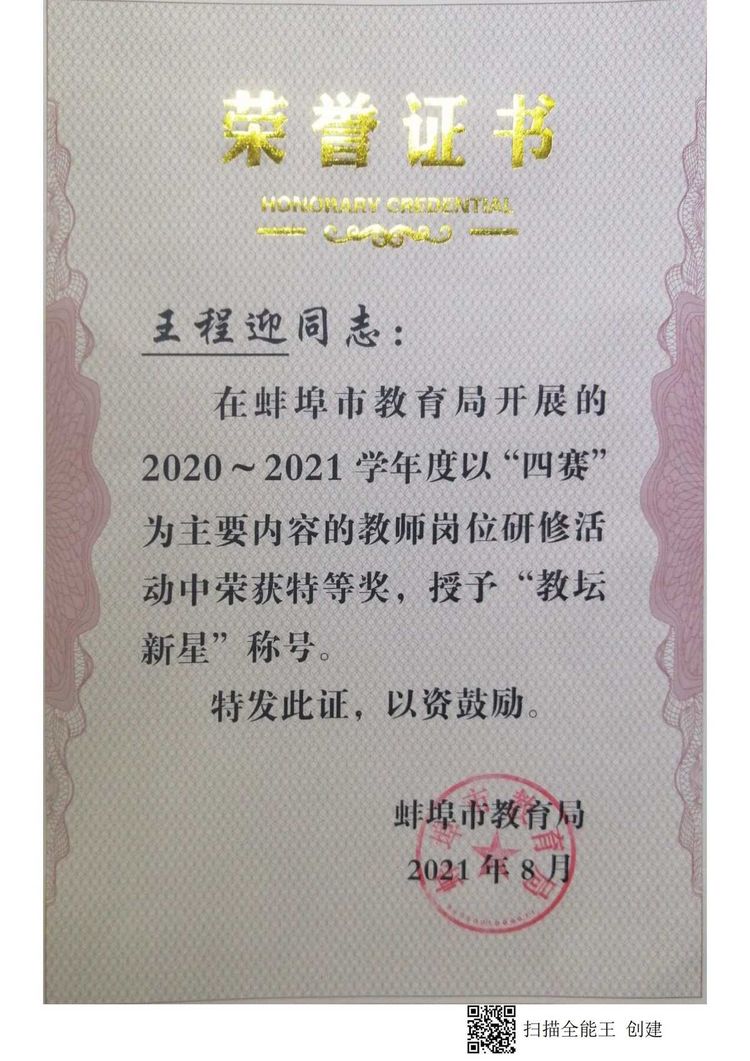 荣誉证书
HONORARY CREDENTIAL
王程迎同志：
在蚌埠市教育局开展的
2020～2021 学年度以“四赛”
为主要内容的教师岗位研修活
动中荣获特等奖，授予“教坛
新星”称号。
特发此证，以资鼓励。
蚌埠市教育局
2021 年 8 月
蚌埠市教育局
扫描全能王 创建